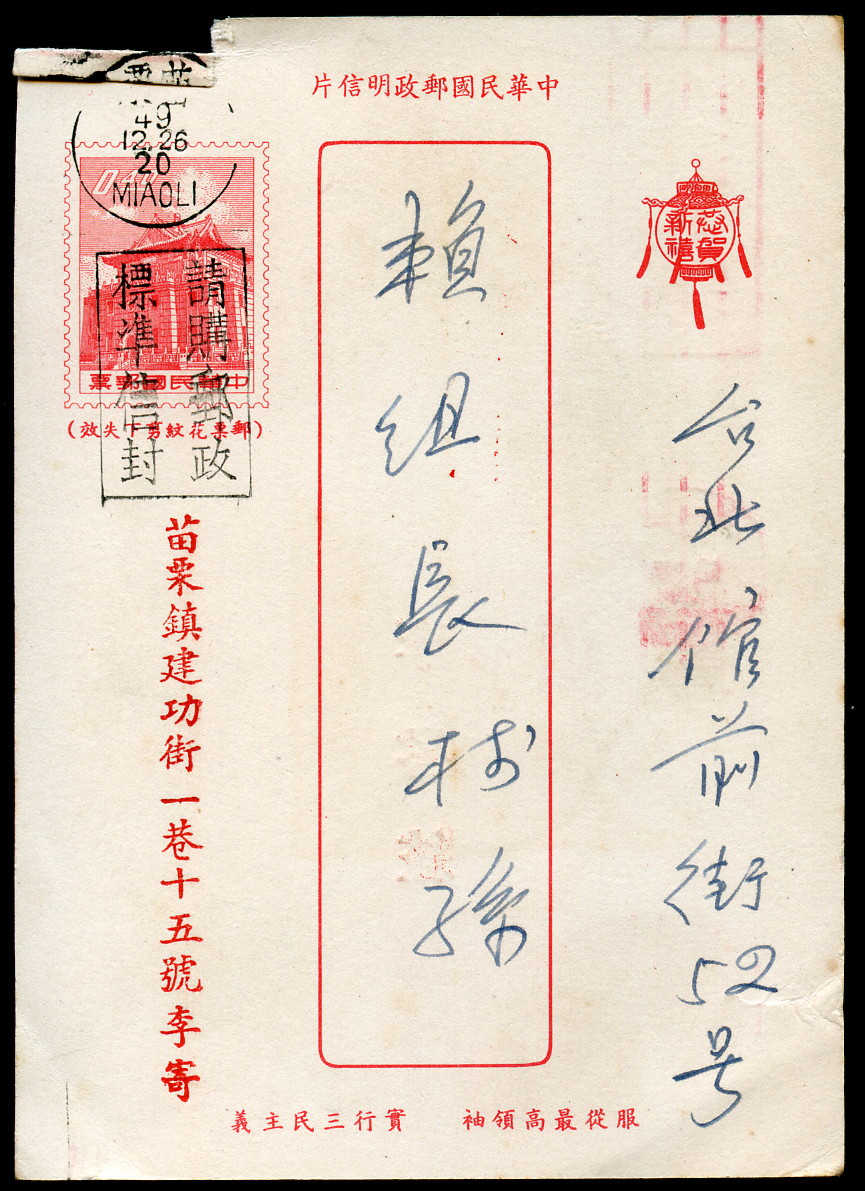 中華民國郵政明信片
恭賀
新禧
台北館前街52号
賴組長樹孫
49
12.26
20
MIAOLI
0.40
中華民國郵票
(郵票花紋剪下失效)
請購郵政
標準信封
苗栗鎮建功街一巷十五號李寄
服從最高領袖 實行三民主義